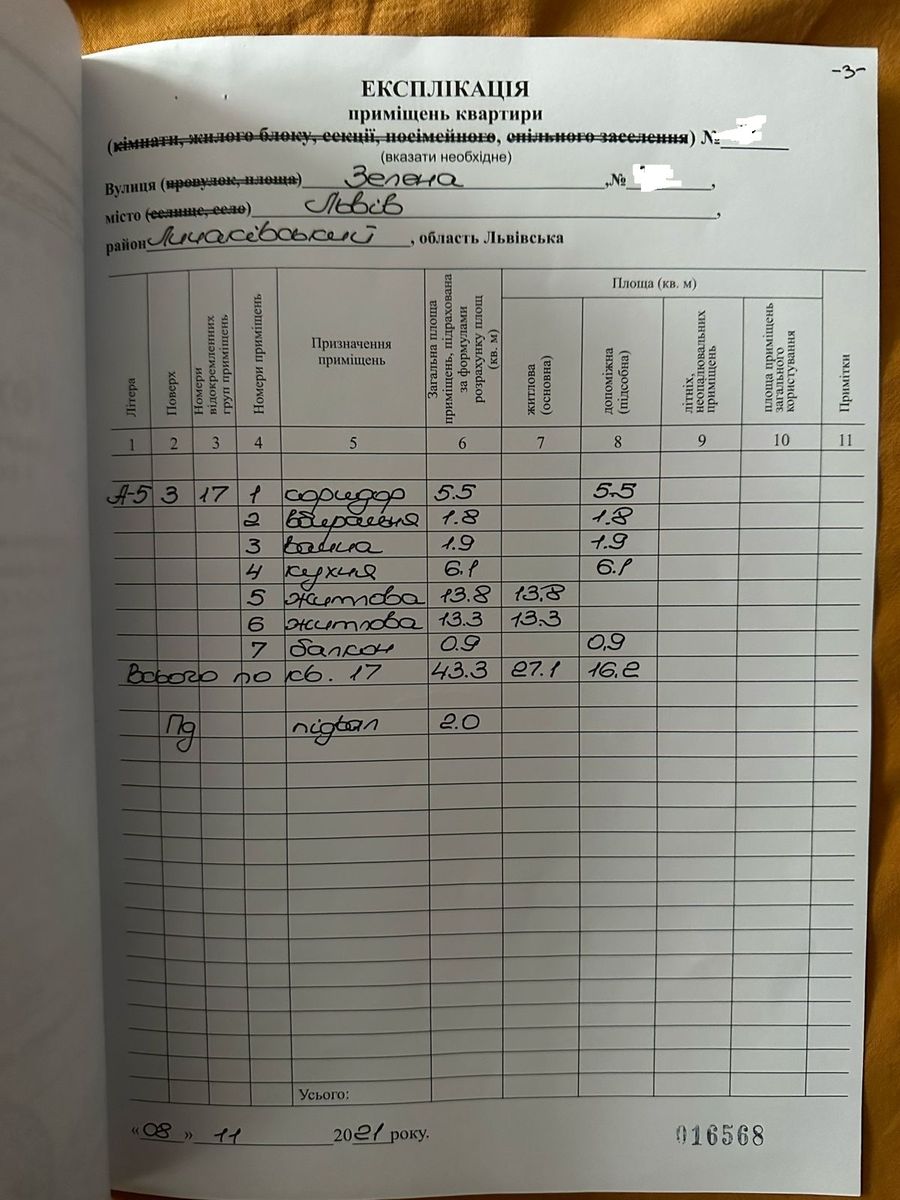 -3-
ЕКСПЛІКАЦІЯ
приміщень квартири
(кімнати, жилого блоку, секції, посімейного, спільного заселення) №
(вказати необхідне)
Вулиця (провулок, площа) Зелена ,№ ,
місто (селище, село) Львів ,
район Личаківський , область Львівська
Літера Поверх Номери відокремленних груп приміщень Номери приміщень Призначення приміщень Загальна площа приміщень, підрахована за формулами розрахунку площ (кв. м) Площа (кв. м) житлова (основна) допоміжна (підсобна) літніх, неопалювальних приміщень площа приміщень загального користування Примітки
1 2 3 4 5 6 7 8 9 10 11
А-5 3 17 1 коридор 5.5 5.5
2 вбиральня 1.8 1.8
3 ванна 1.9 1.9
4 кухня 6.1 6.1
5 житлова 13.8 13.8
6 житлова 13.3 13.3
7 балкон 0.9 0,9
Всього по кв. 17 43.3 27.1 16.2
Пд підвал 2.0
Усього:
«08» 11 2021 року.
016568